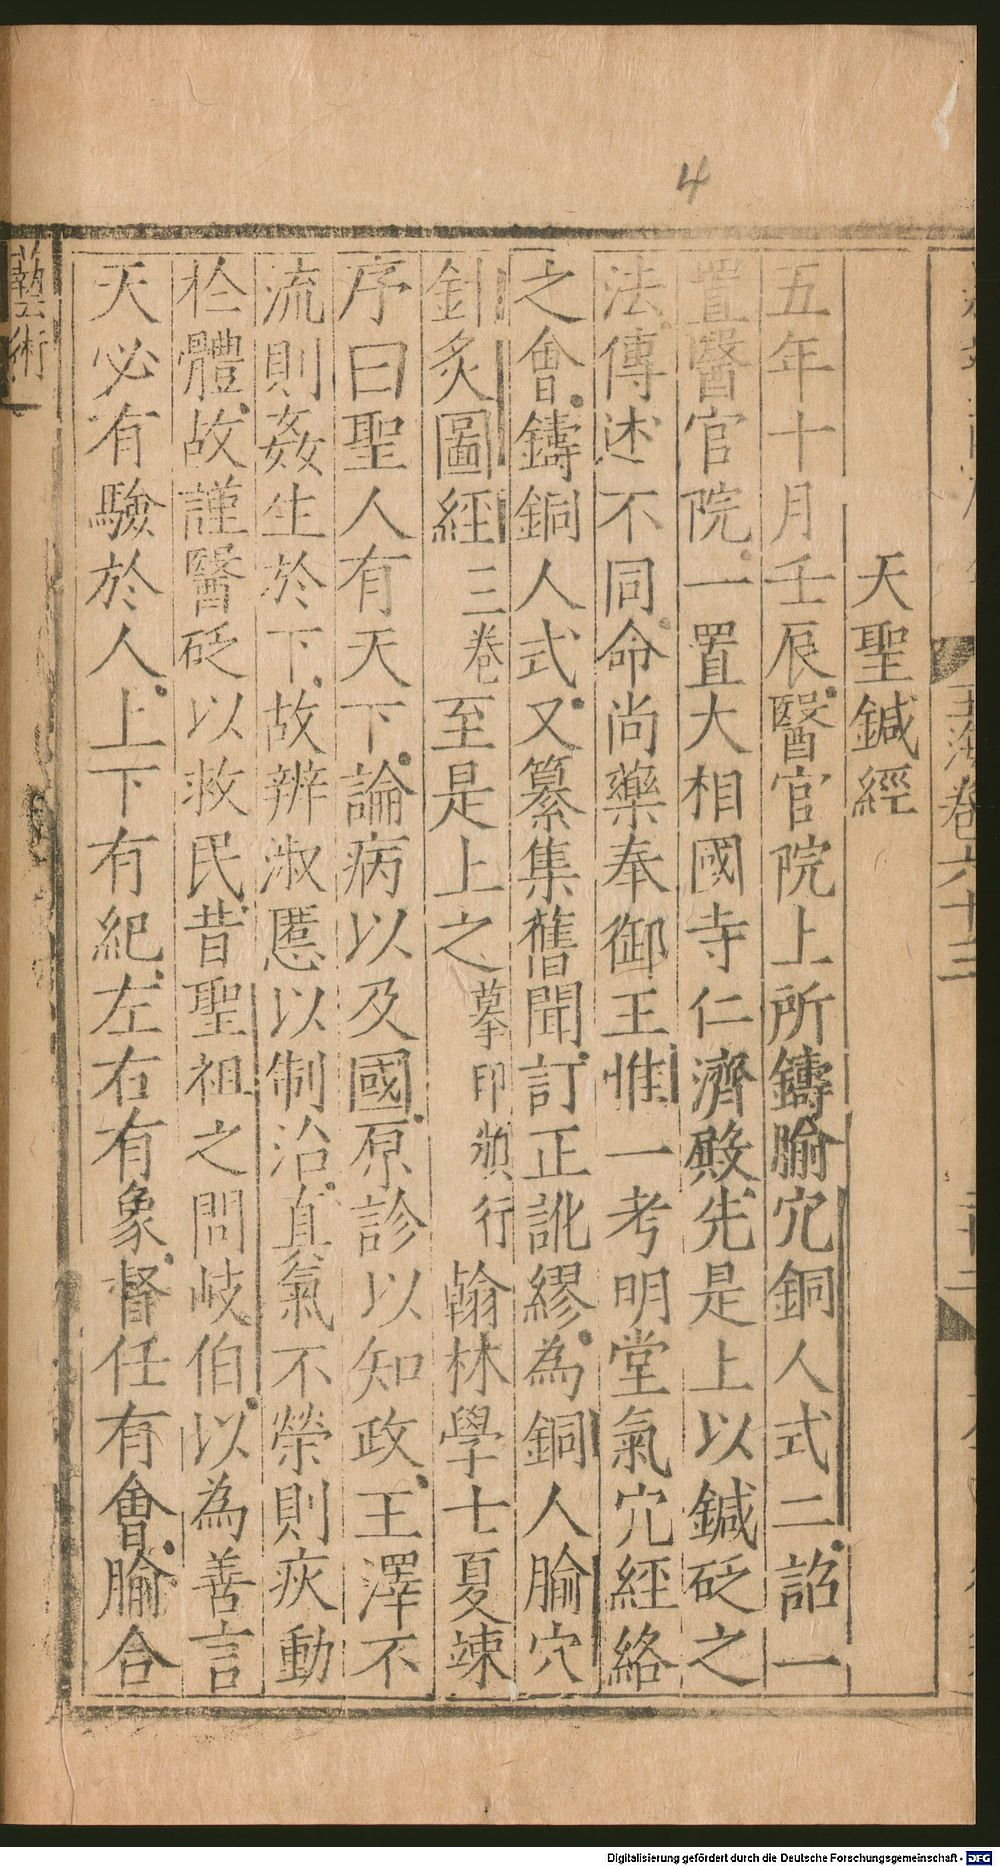 4
天聖鍼經
五年十月壬辰醫官院上所鑄腧穴銅人式二詔一
置醫官院一置大相國寺仁濟殿先是上以鍼砭之
法傳述不同命尚藥奉御王惟一考明堂氣穴經絡
之會鑄銅人式又纂集舊聞訂正訛繆為銅人腧穴
針炙圖經三卷至是上之摹印頒行翰林學士夏竦
序曰聖人有天下論病以及國原診以知政王澤不
流則姦生於下故辨淑慝以制治真氣不榮則疢動
於體故謹醫砭以救民昔聖祖之問岐伯以為善言
天必有驗於人上下有紀左右有象督任有會腧合
藝術
玉海卷六十三
Digitalisierung gefördert durch die Deutsche Forschungsgemeinschaft - DFG